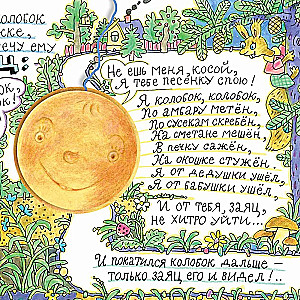 КОЛОБОК
СКЕ,
ЕЧУ ЕМУ
ОК,
ОК!
Не ешь меня, косой,
Я тебе песенку спою!
Я колобок, колобок,
По амбару метён,
По сусекам скребён,
На сметане мешён,
В печку сажён,
На окошке стужён,
Я от дедушки ушёл,
Я от бабушки ушёл,
И от тебя, заяц,
не хитро уйти...
И покатился колобок дальше –
только заяц его и видел!..